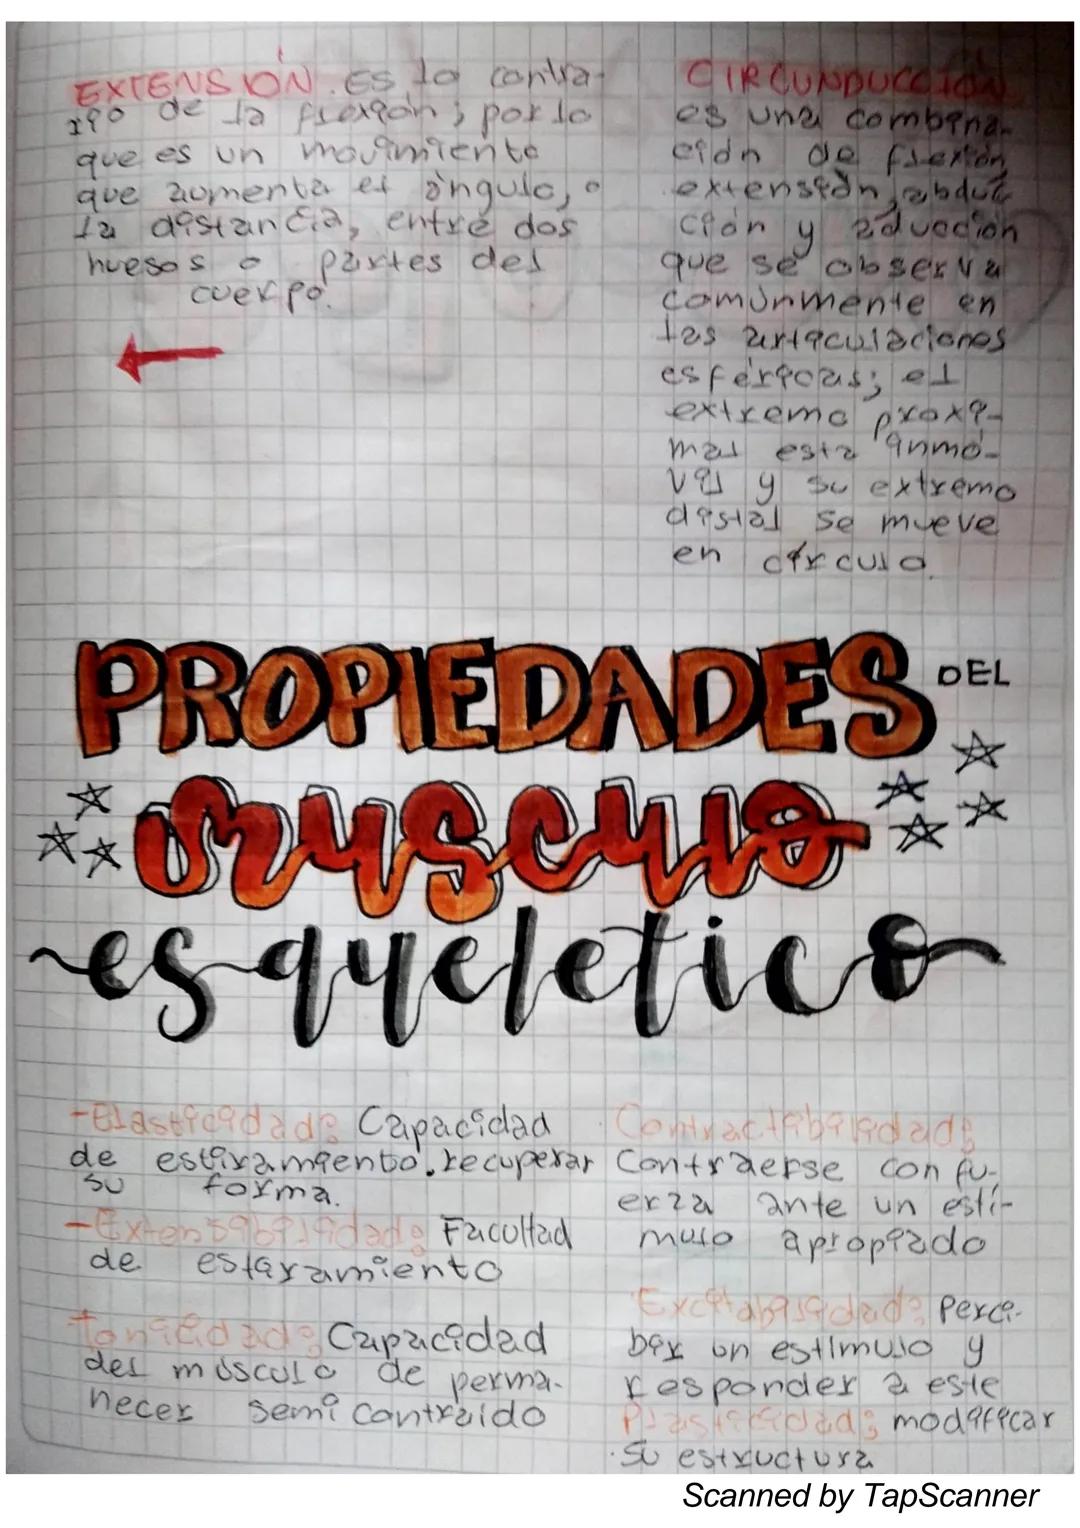 EXTENSIÓN. Es lo contra-
rio de la flexión; por lo
que es un movimiento
que aumenta el ángulo, o
la distancia, entre dos
huesos o partes del
cuerpo.
CIRCUNDUCCIÓN
es una combina-
ción de flexión,
extensión, abduc
ción y aducción
que se observa
comúnmente en
las articulaciones
esféricas; el
extremo proxi-
mal esta inmó-
vil y su extremo
distal se mueve
en círculo.
PROPIEDADES DEL
músculo
esqueletico
-Elasticidad: Capacidad
de estiramiento. recuperar
su forma.
-Extensibilidad: Facultad
de estiramiento
-Tonicidad: Capacidad
del músculo de perma-
necer semi contraido
Contractibilidad:
Contraerse con fu-
erza ante un estí-
mulo apropiado
Excitabilidad: Perci-
bir un estimulo y
responder a este
Plasticidad: modificar
su estructura
Scanned by TapScanner